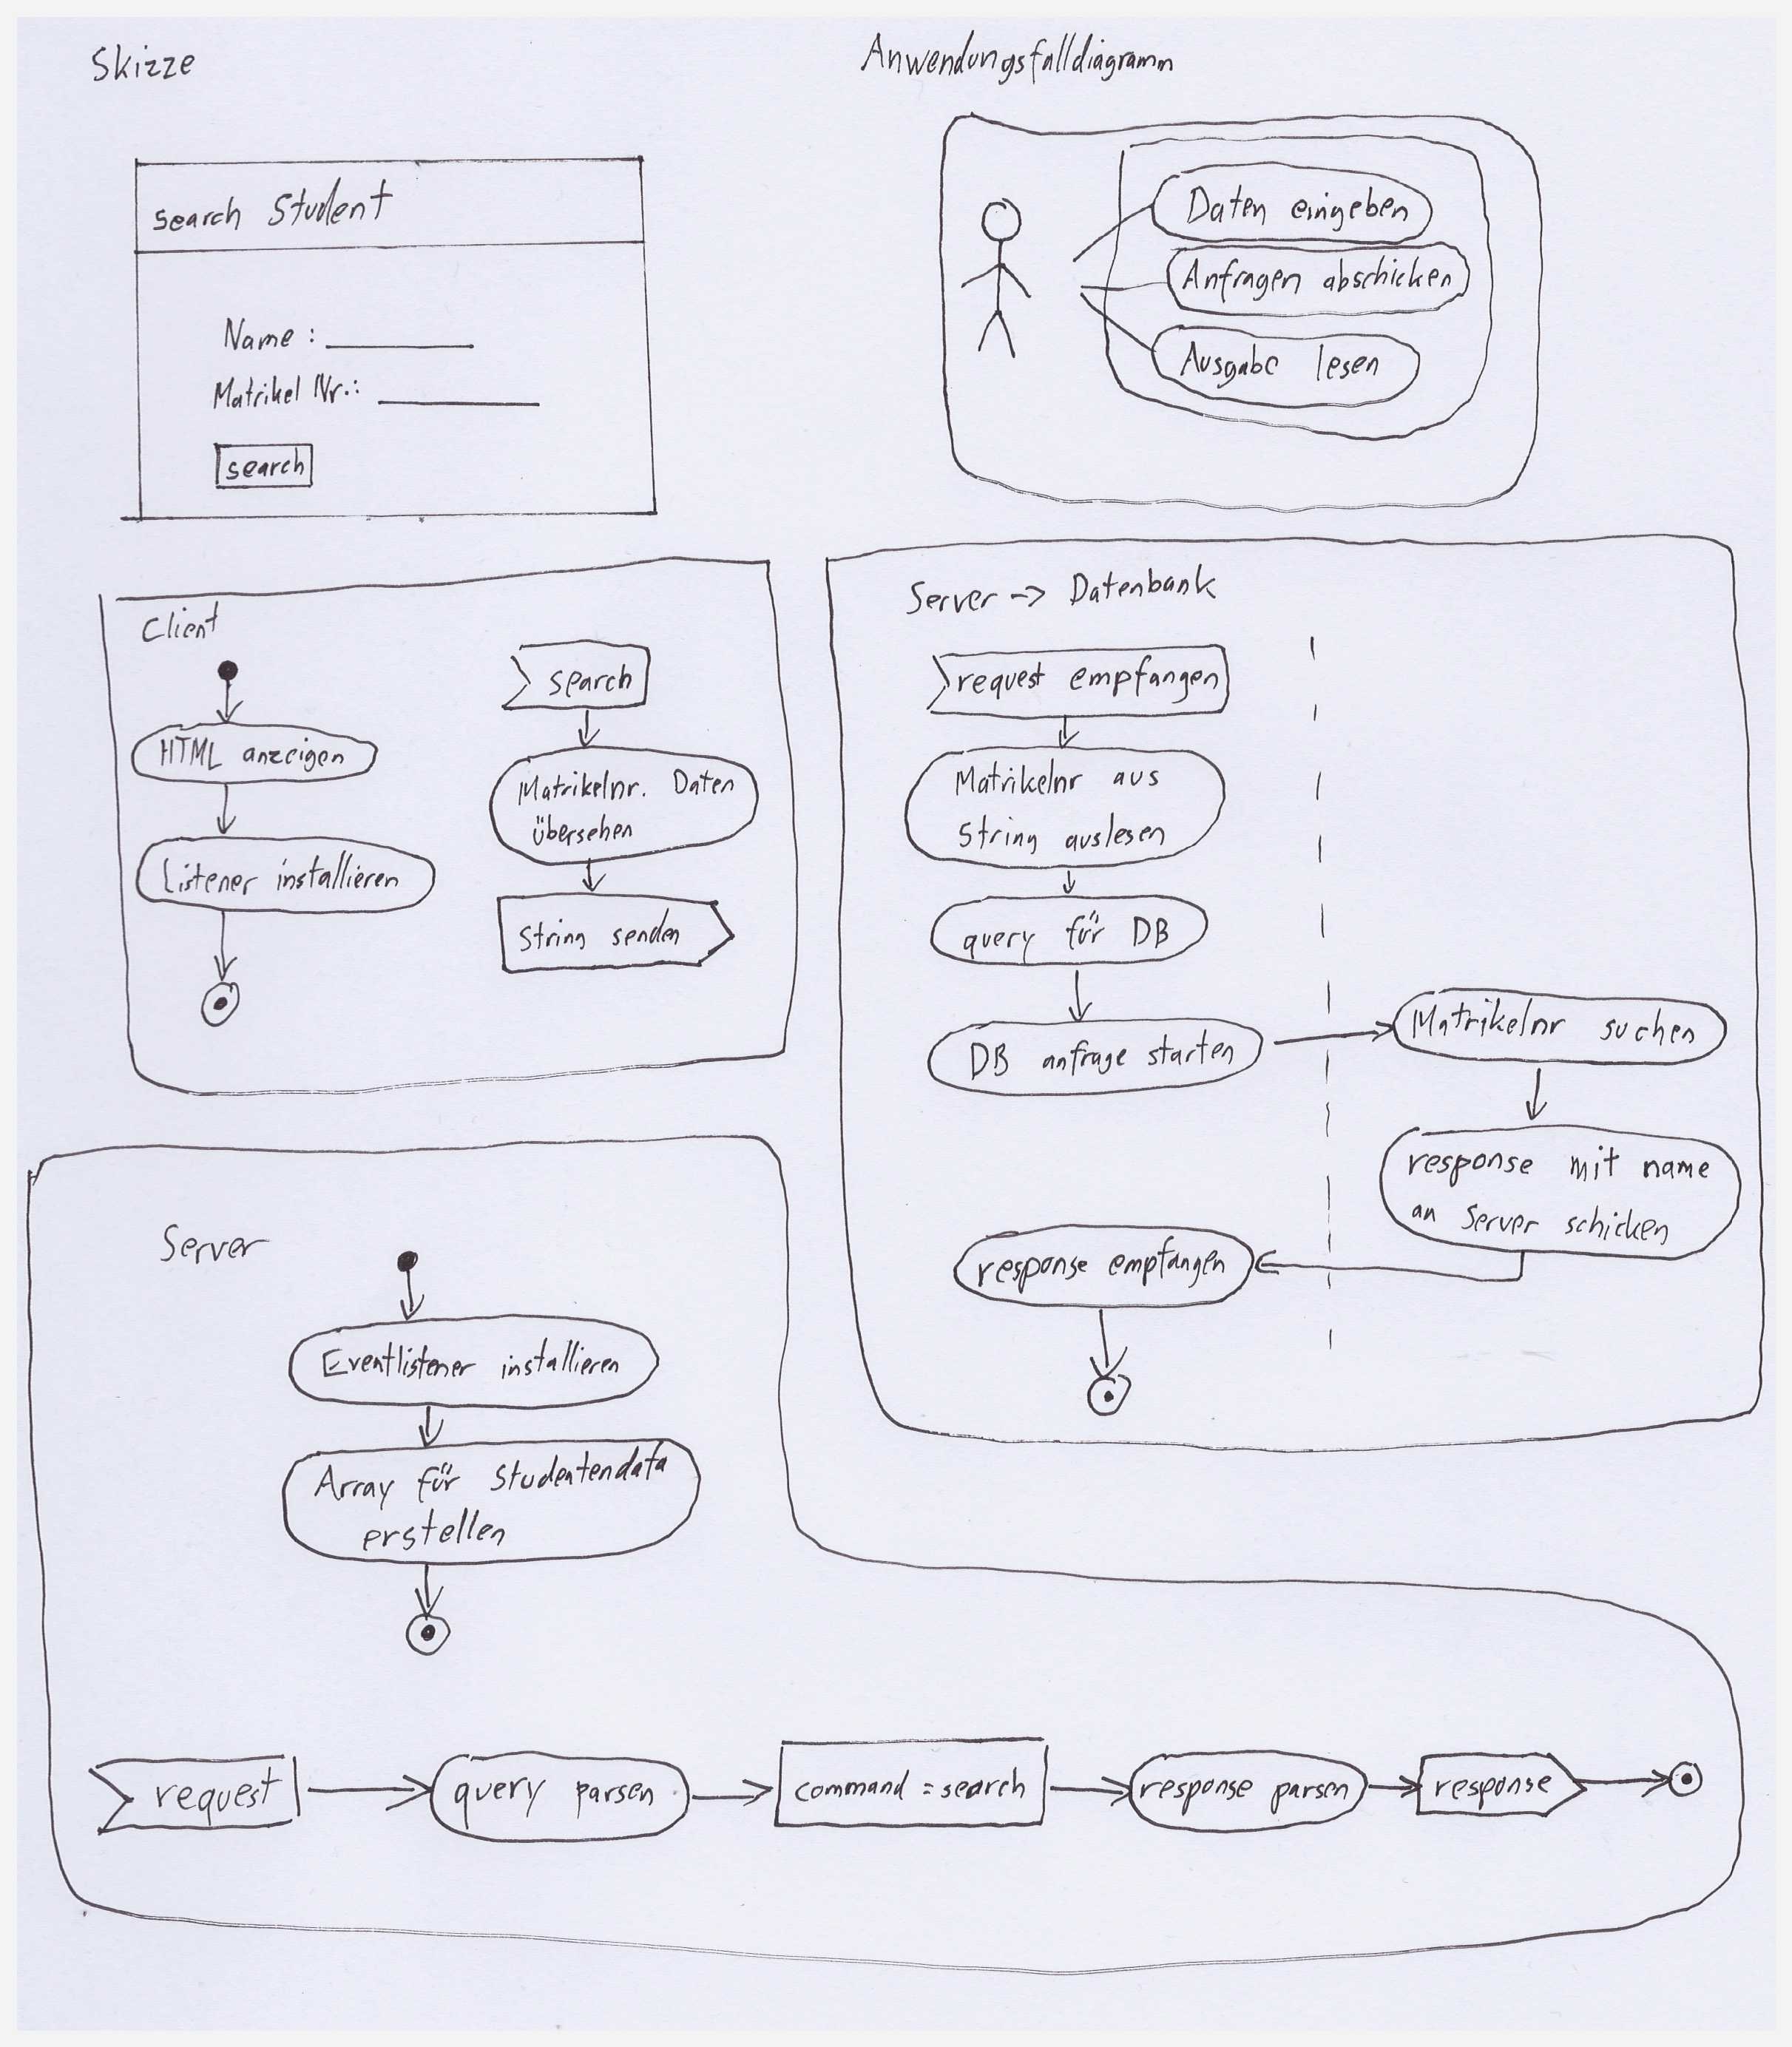 Skizze
Anwendungsfalldiagramm
search Student
Name :
Matrikel Nr.:
search
Daten eingeben
Anfragen abschicken
Ausgabe lesen
Client
HTML anzeigen
Listener installieren
search
Matrikelnr. Daten
übersehen
String senden
Server -> Datenbank
request empfangen
Matrikelnr aus
String auslesen
query für DB
DB anfrage starten
Matrikelnr suchen
response mit name
an Server schicken
response empfangen
Server
Eventlistener installieren
Array für Studentendata
erstellen
request
query parsen
command = search
response parsen
response